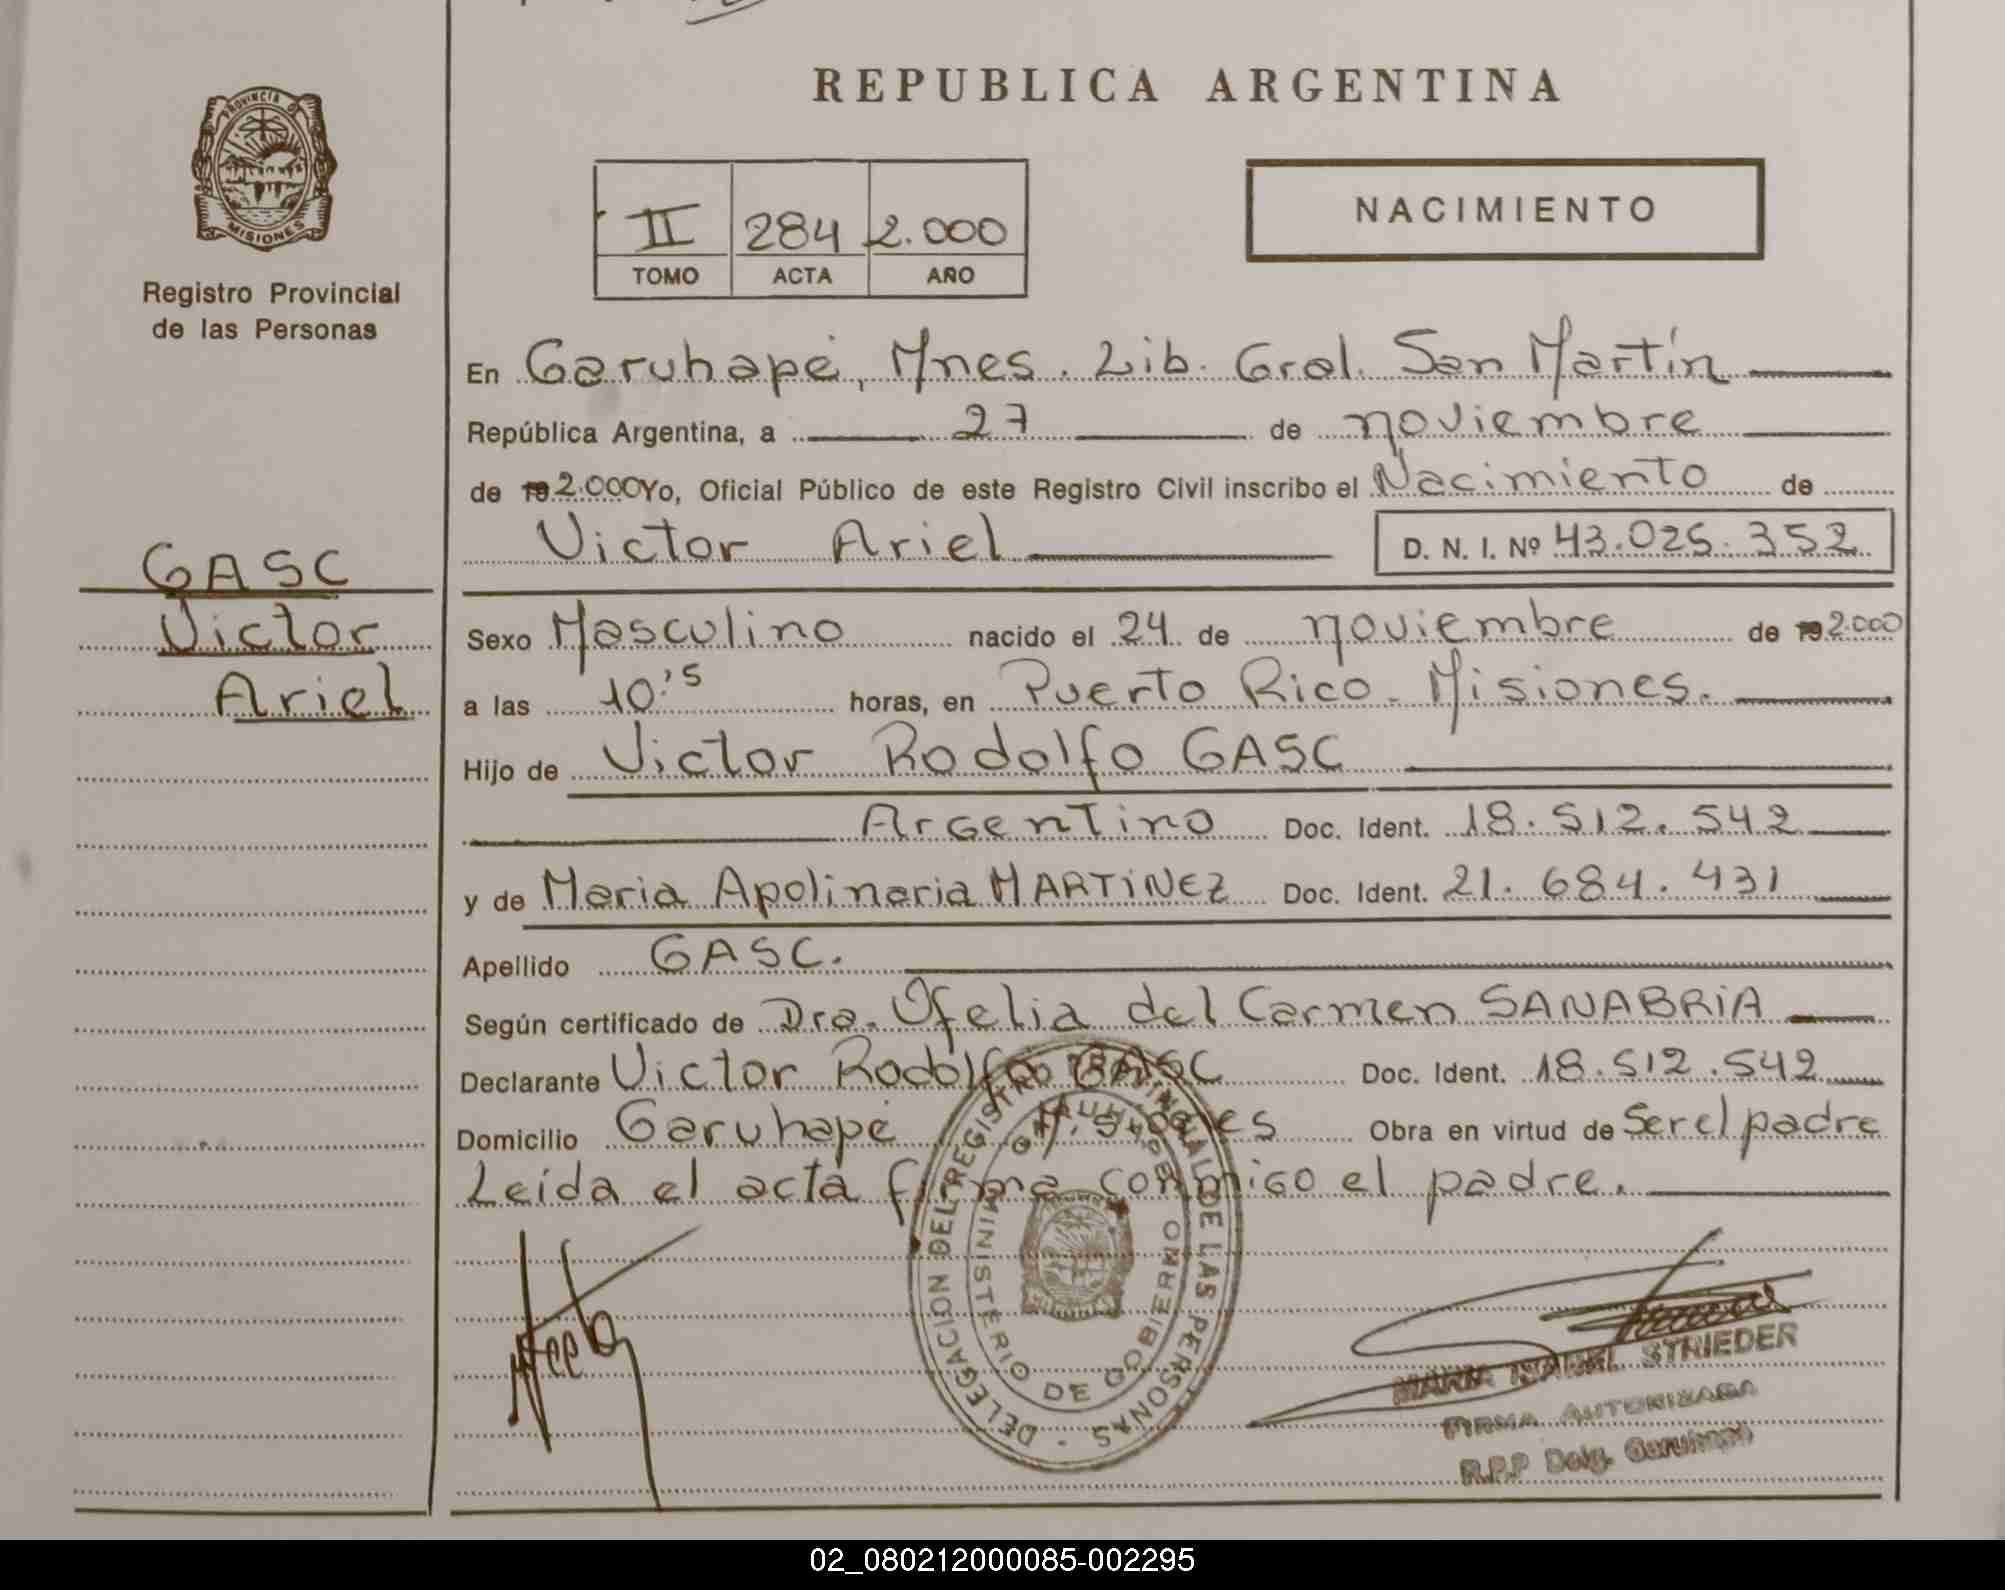 REPUBLICA ARGENTINA
PROVINCIA DE
MISIONES
Registro Provincial
de las Personas
II 284 2.000
TOMO ACTA AÑO
NACIMIENTO
En Garuhapé, Mnes. Lib. Gral. San Martín
República Argentina, a 27 de noviembre
de 19 2.000 Yo, Oficial Público de este Registro Civil inscribo el Nacimiento de
Victor Ariel D. N. I. Nº 43.025.352
GASC
Victor
Ariel
Sexo Masculino nacido el 24 de noviembre de 19 2.000
a las 10:'5 horas, en Puerto Rico - Misiones.
Hijo de Victor Rodolfo GASC
Argentino Doc. Ident. 18.512.542
y de Maria Apolinaria MARTiNEZ Doc. Ident. 21.684.431
Apellido GASC.
Según certificado de Dra. Ofelia del Carmen SANABRiA
Declarante Victor Rodolfo GASC Doc. Ident. 18.512.542
Domicilio Garuhapé Misiones Obra en virtud de Ser el padre
Leída el acta firma conmigo el padre.
DELEGACION DEL REGISTRO PROVINCIAL DE LAS PERSONAS
GARUHAPE
MINISTERIO DE GOBIERNO
MARIA ISABEL STRIEDER
FIRMA AUTORIZADA
R.P.P Deleg. Garuhape
02_080212000085-002295